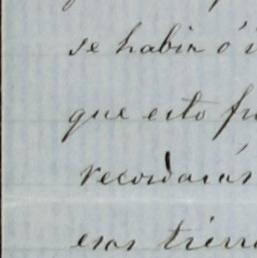 se habia ó
que esto
recordarás
esas tierra